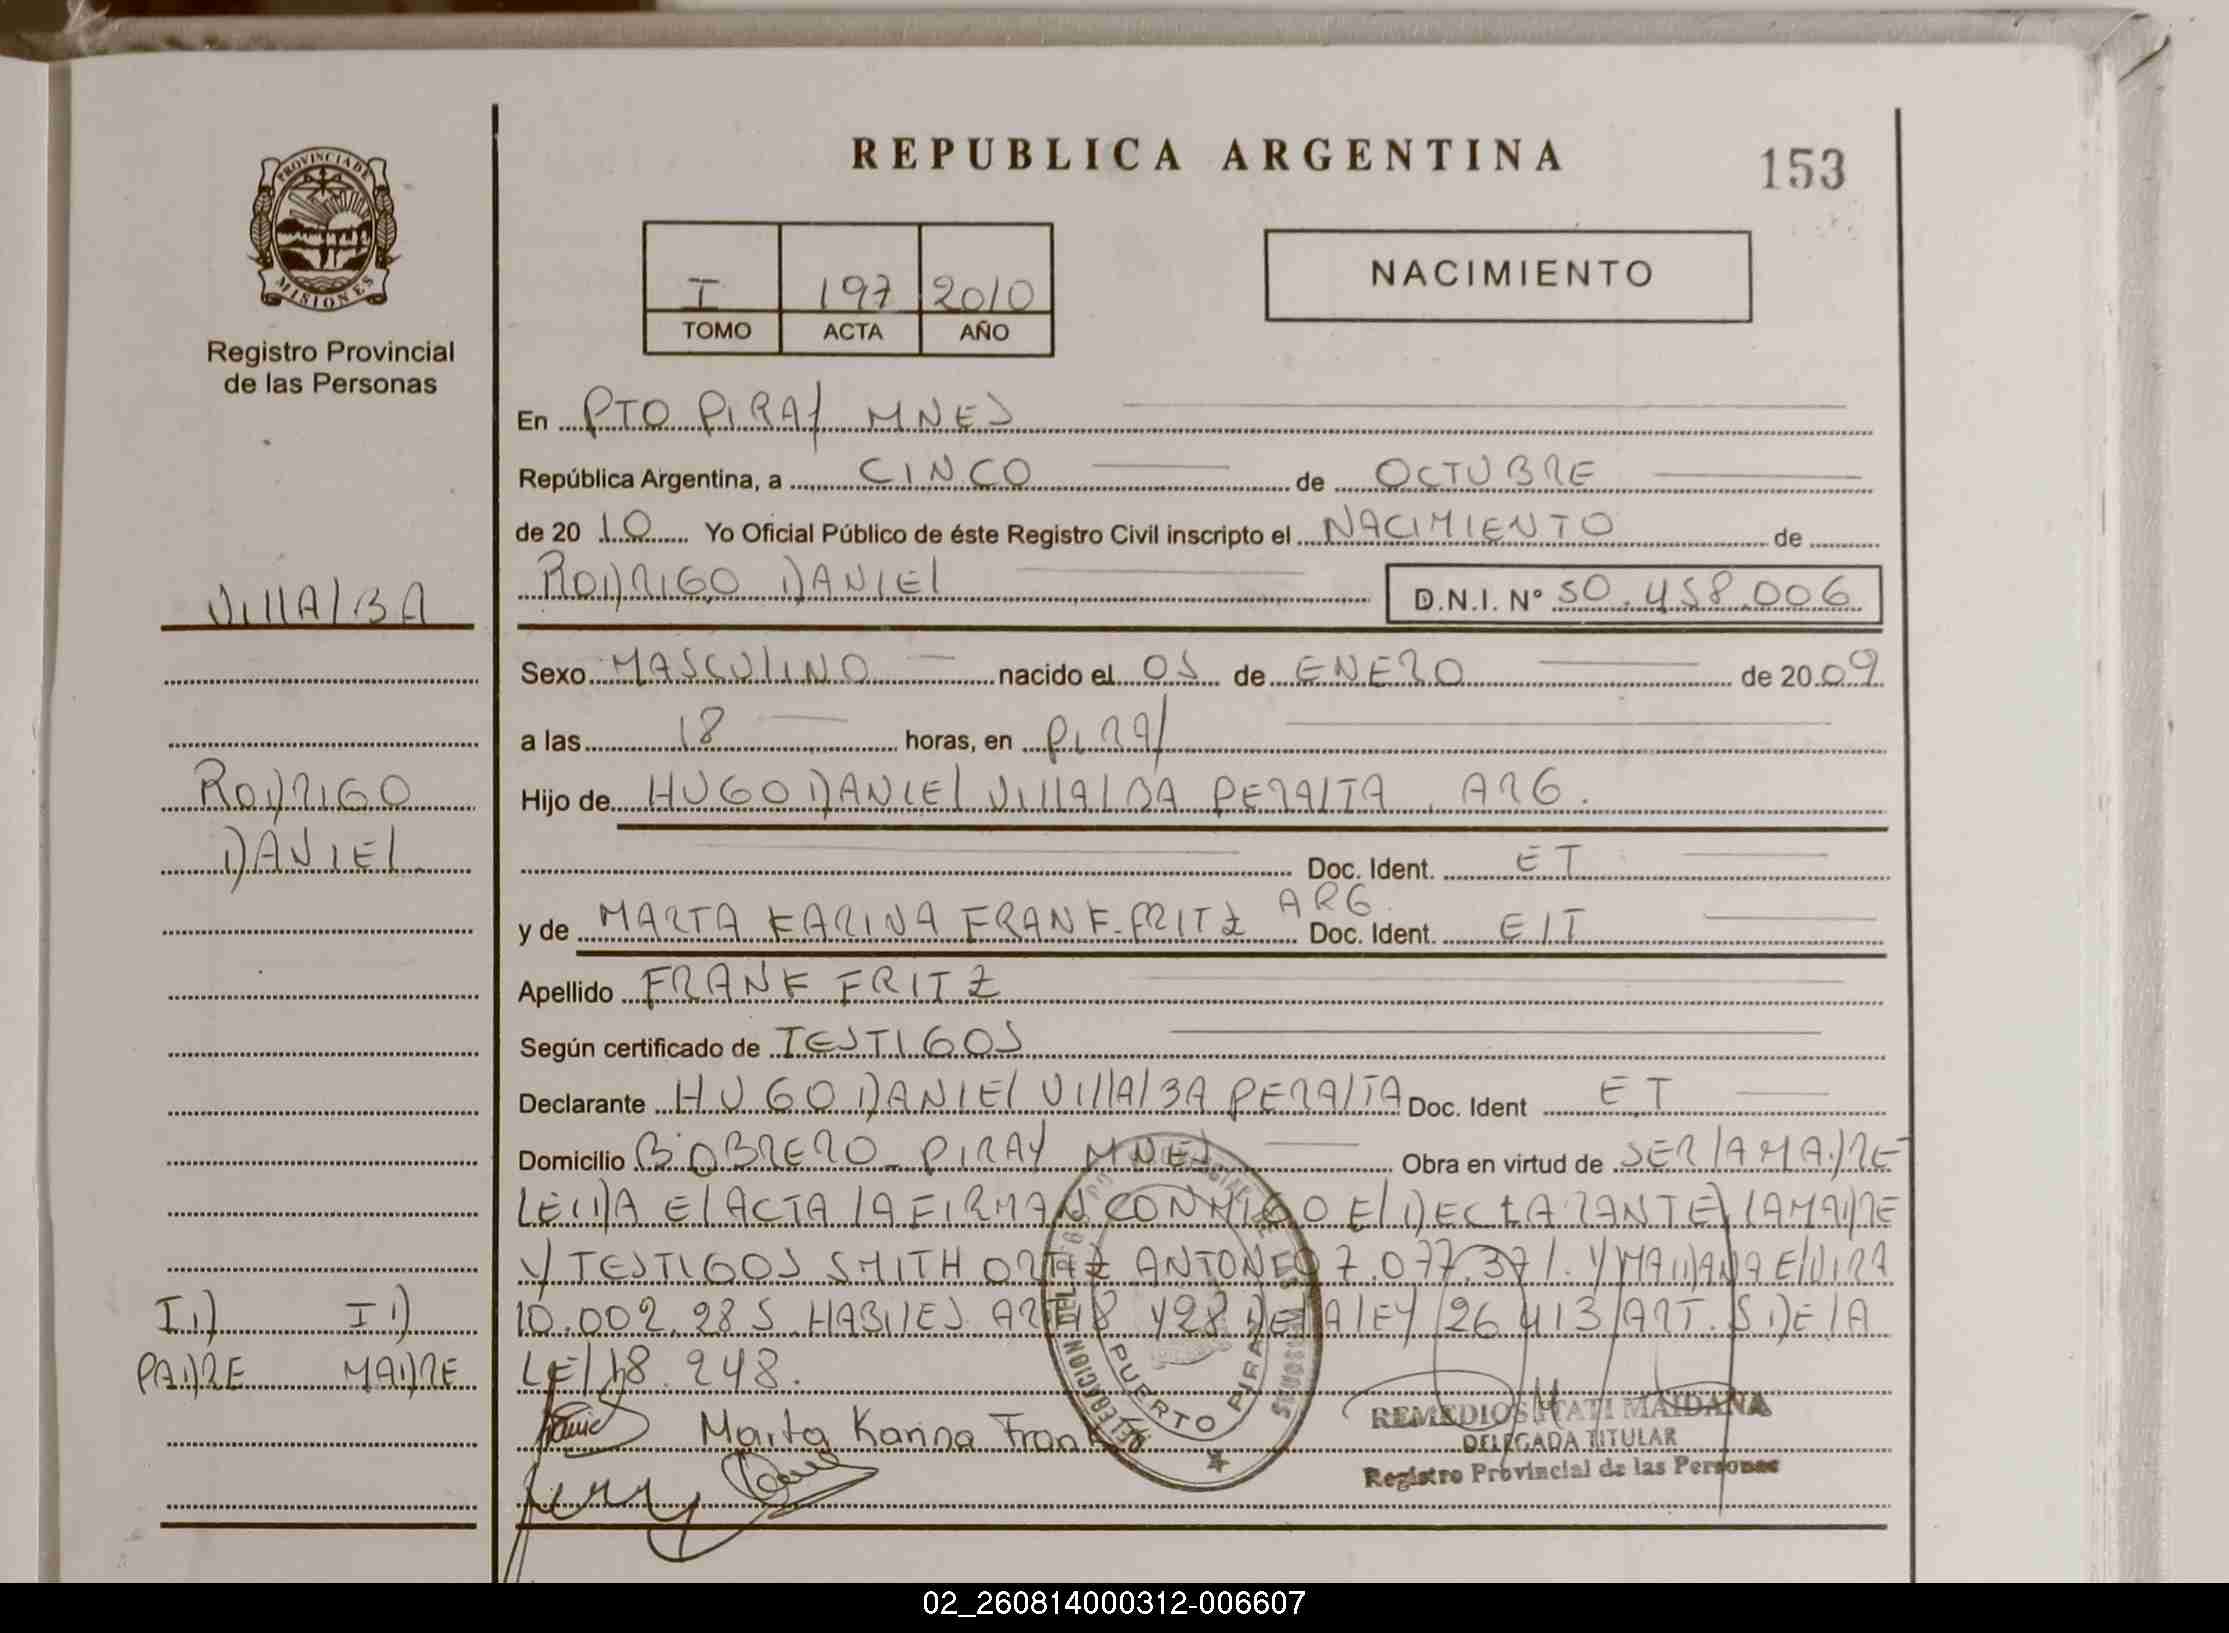 PROVINCIA DE
MISIONES
Registro Provincial
de las Personas
VILLALBA
RODRIGO
DANIEL
ID ID
PADRE MADRE
REPUBLICA ARGENTINA
153
I 197 2010
TOMO ACTA AÑO
NACIMIENTO
En PTO PIRAY MNES
República Argentina, a CINCO de OCTUBRE
de 20 10 Yo Oficial Público de éste Registro Civil inscripto el NACIMIENTO de
RODRIGO DANIEL D.N.I. N° 50.458.006
Sexo MASCULINO nacido el 05 de ENERO de 20 09
a las 18 horas, en PIRAY
Hijo de HUGO DANIEL VILLALBA PERALTA, ARG.
Doc. Ident. ET
y de MARTA KARINA FRANK-FRITZ ARG Doc. Ident. E/T
Apellido FRANK FRITZ
Según certificado de TESTIGOS
Declarante HUGO DANIEL VILLALBA PERALTA Doc. Ident ET
Domicilio Bº OBRERO - PIRAY MNES Obra en virtud de SER LA MADRE
LEIDA EL ACTA LA FIRMAN CONMIGO EL DECLARANTE, LA MADRE
Y TESTIGOS SMITH ORTIZ 7.077.371. Y MAIDANA ELVIRA
10.002.285 HABILES ART 18 Y 28 DE LA LEY 26413 ART. 5 DE LA
LEY 18.248.
Marta Karina Frank
PUERTO PIRAY
DELEGACION
MISIONES
REMEDIOS ITATI MAIDANA
DELEGADA TITULAR
Registro Provincial de las Personas
02_260814000312-006607